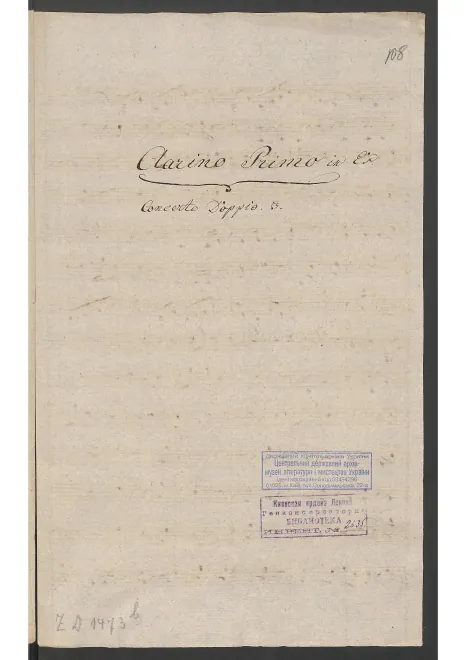 108
Clarino Primo in Es
Concerto Doppio. 3.
Центральний державний архів-
музей літератури і мистецтва України
Киевская ордена Ленина
Госконсерватория
БИБЛИОТЕКА
ИНВЕНТ. №
ZD 1473 b